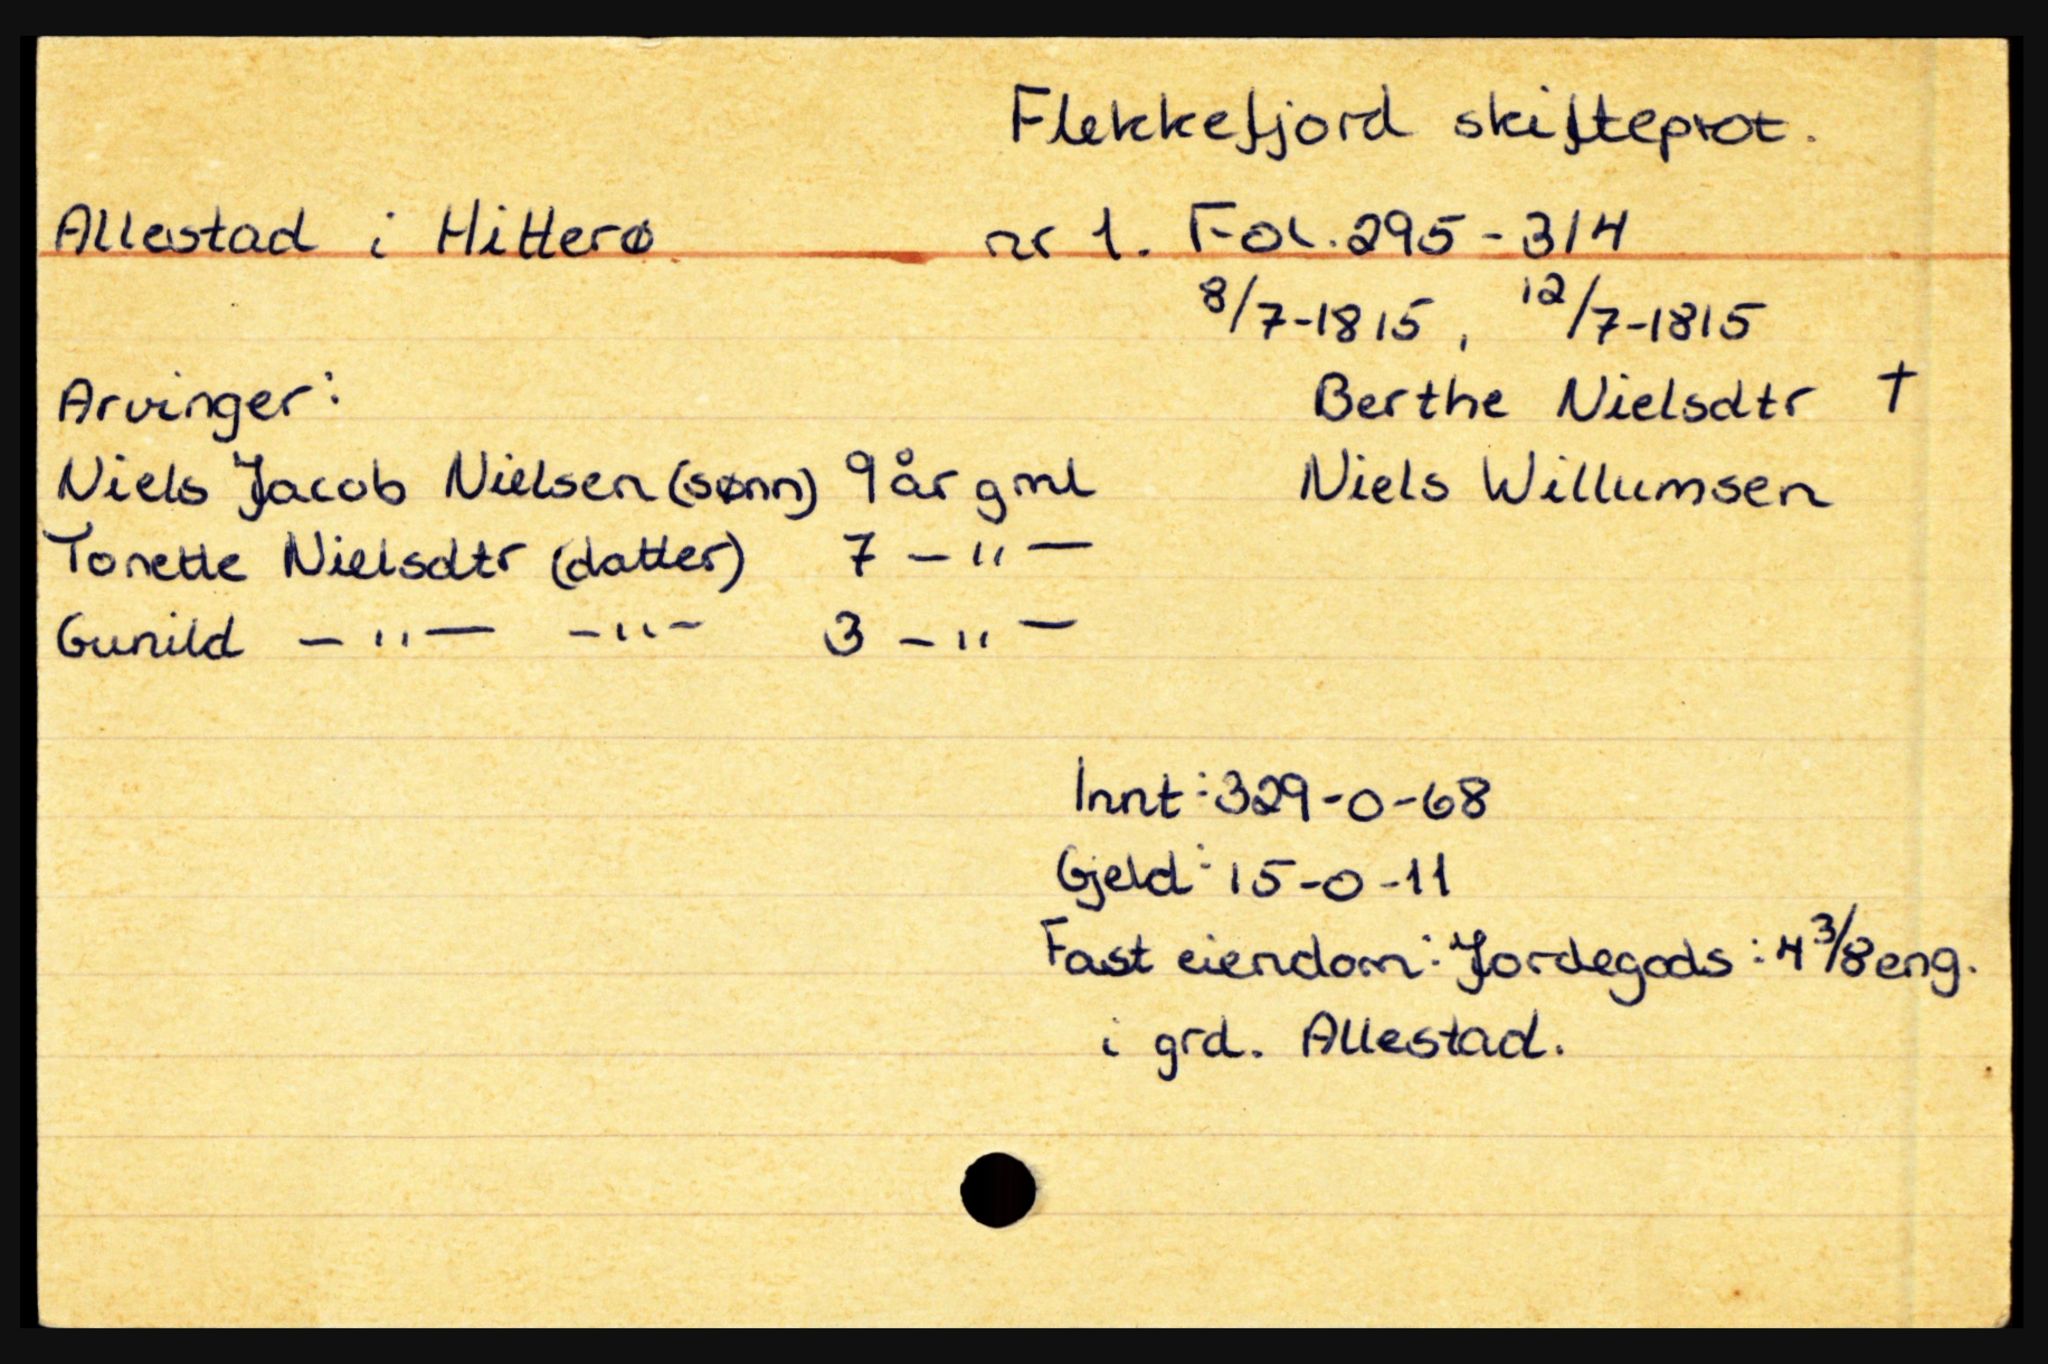 Flekkefjord skifteprot.
Allestad i Hitterø nr 1. Fol. 295-314
8/7-1815, 12/7-1815
Arvinger: Berthe Nielsdtr †
Niels Jacob Nielsen (sønn) 9 år gml Niels Willumsen
Tonette Nielsdtr (datter) 7 -"-
Gunild -"- -"- 3 -"-
Innt: 329-0-68
Gjeld: 15-0-11
Fast eiendom: Jordegods: 4 3/8 eng.
i grd. Allestad.